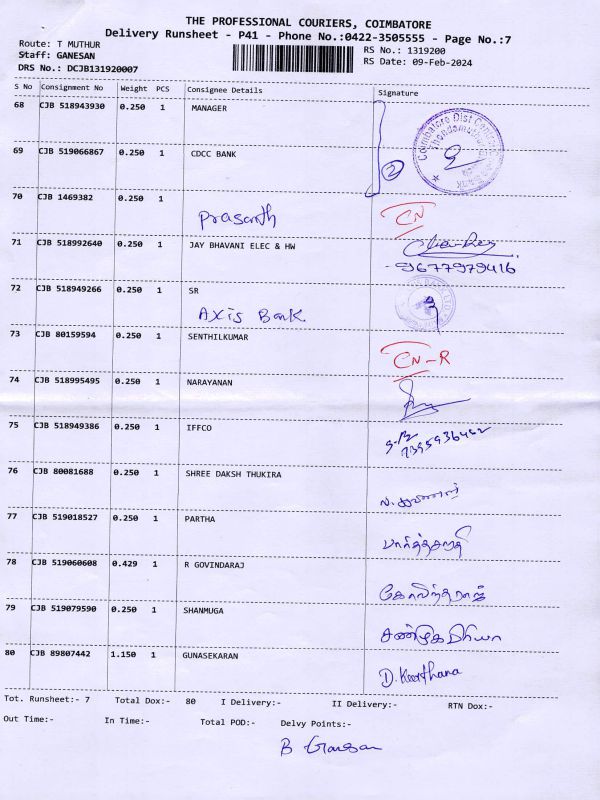 THE PROFESSIONAL COURIERS, COIMBATORE
Delivery Runsheet - P41 - Phone No.:0422-3505555 - Page No.:7
Route: T MUTHUR
RS No.: 1319200
Staff: GANESAN
RS Date: 09-Feb-2024
DRS No.: DCJB131920007
S No Consignment No Weight PCS Consignee Details Signature
68 CJB 518943930 0.250 1 MANAGER
Coimbatore Dist
2
69 CJB 519066867 0.250 1 CDCC BANK
70 CJB 1469382 0.250 1
Prasanth CN
71 CJB 518992640 0.250 1 JAY BHAVANI ELEC & HW
9677979416
72 CJB 518949266 0.250 1 SR
Axis Bank
73 CJB 80159594 0.250 1 SENTHILKUMAR
CN-R
74 CJB 518995495 0.250 1 NARAYANAN
75 CJB 518949386 0.250 1 IFFCO
76 CJB 80081688 0.250 1 SHREE DAKSH THUKIRA
77 CJB 519018527 0.250 1 PARTHA
பார்த்தசாரதி
78 CJB 519060608 0.429 1 R GOVINDARAJ
கோவிந்தராஜ்
79 CJB 519079590 0.250 1 SHANMUGA
சண்முகபிரியா
80 CJB 89807442 1.150 1 GUNASEKARAN
D. Keerthana
Tot. Runsheet:- 7 Total Dox:- 80 I Delivery:- II Delivery:- RTN Dox:-
Out Time:- In Time:- Total POD:- Delvy Points:-